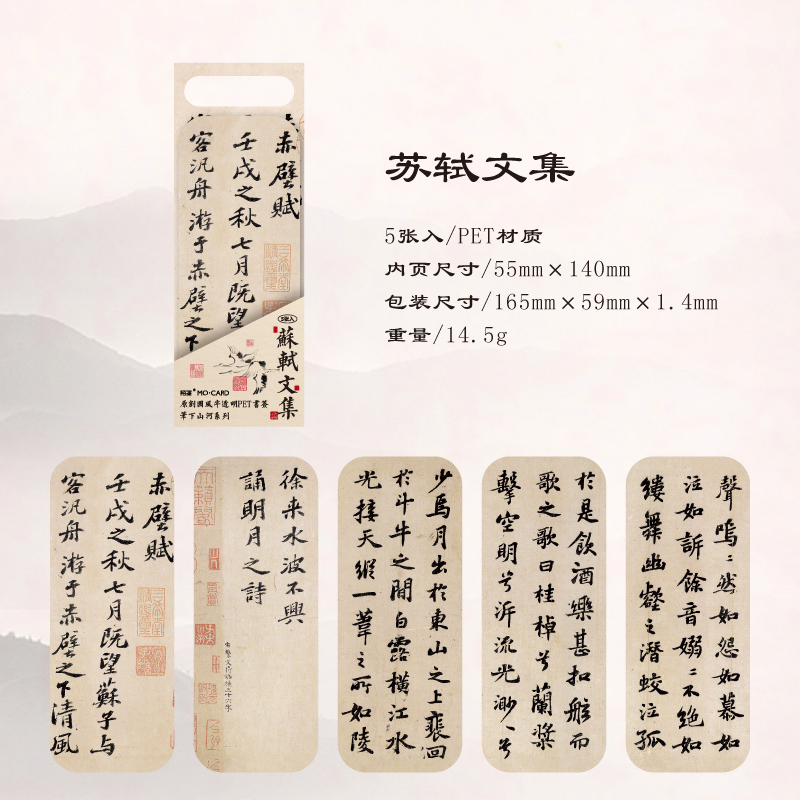 赤壁賦
壬戌之秋七月既望
客汎舟游于赤壁之下
5张入
蘇軾文集
陌逢®MO·CARD
原創國風半透明PET書簽
筆下山河系列
苏轼文集
5张入/PET材质
内页尺寸/55mm×140mm
包装尺寸/165mm×59mm×1.4mm
重量/14.5g
赤壁賦
壬戌之秋七月既望蘇子与
客汎舟游于赤壁之下清風
徐来水波不興
誦明月之詩
少焉月出於東山之上裵回
於斗牛之間白露橫江水
光接天縱一葦之所如陵
於是飲酒樂甚扣舷而
歌之歌曰桂棹兮蘭槳
擊空明兮泝流光渺〻兮
聲嗚〻然如怨如慕如
泣如訴餘音嫋〻不絕如
縷舞幽壑之潛蛟泣孤